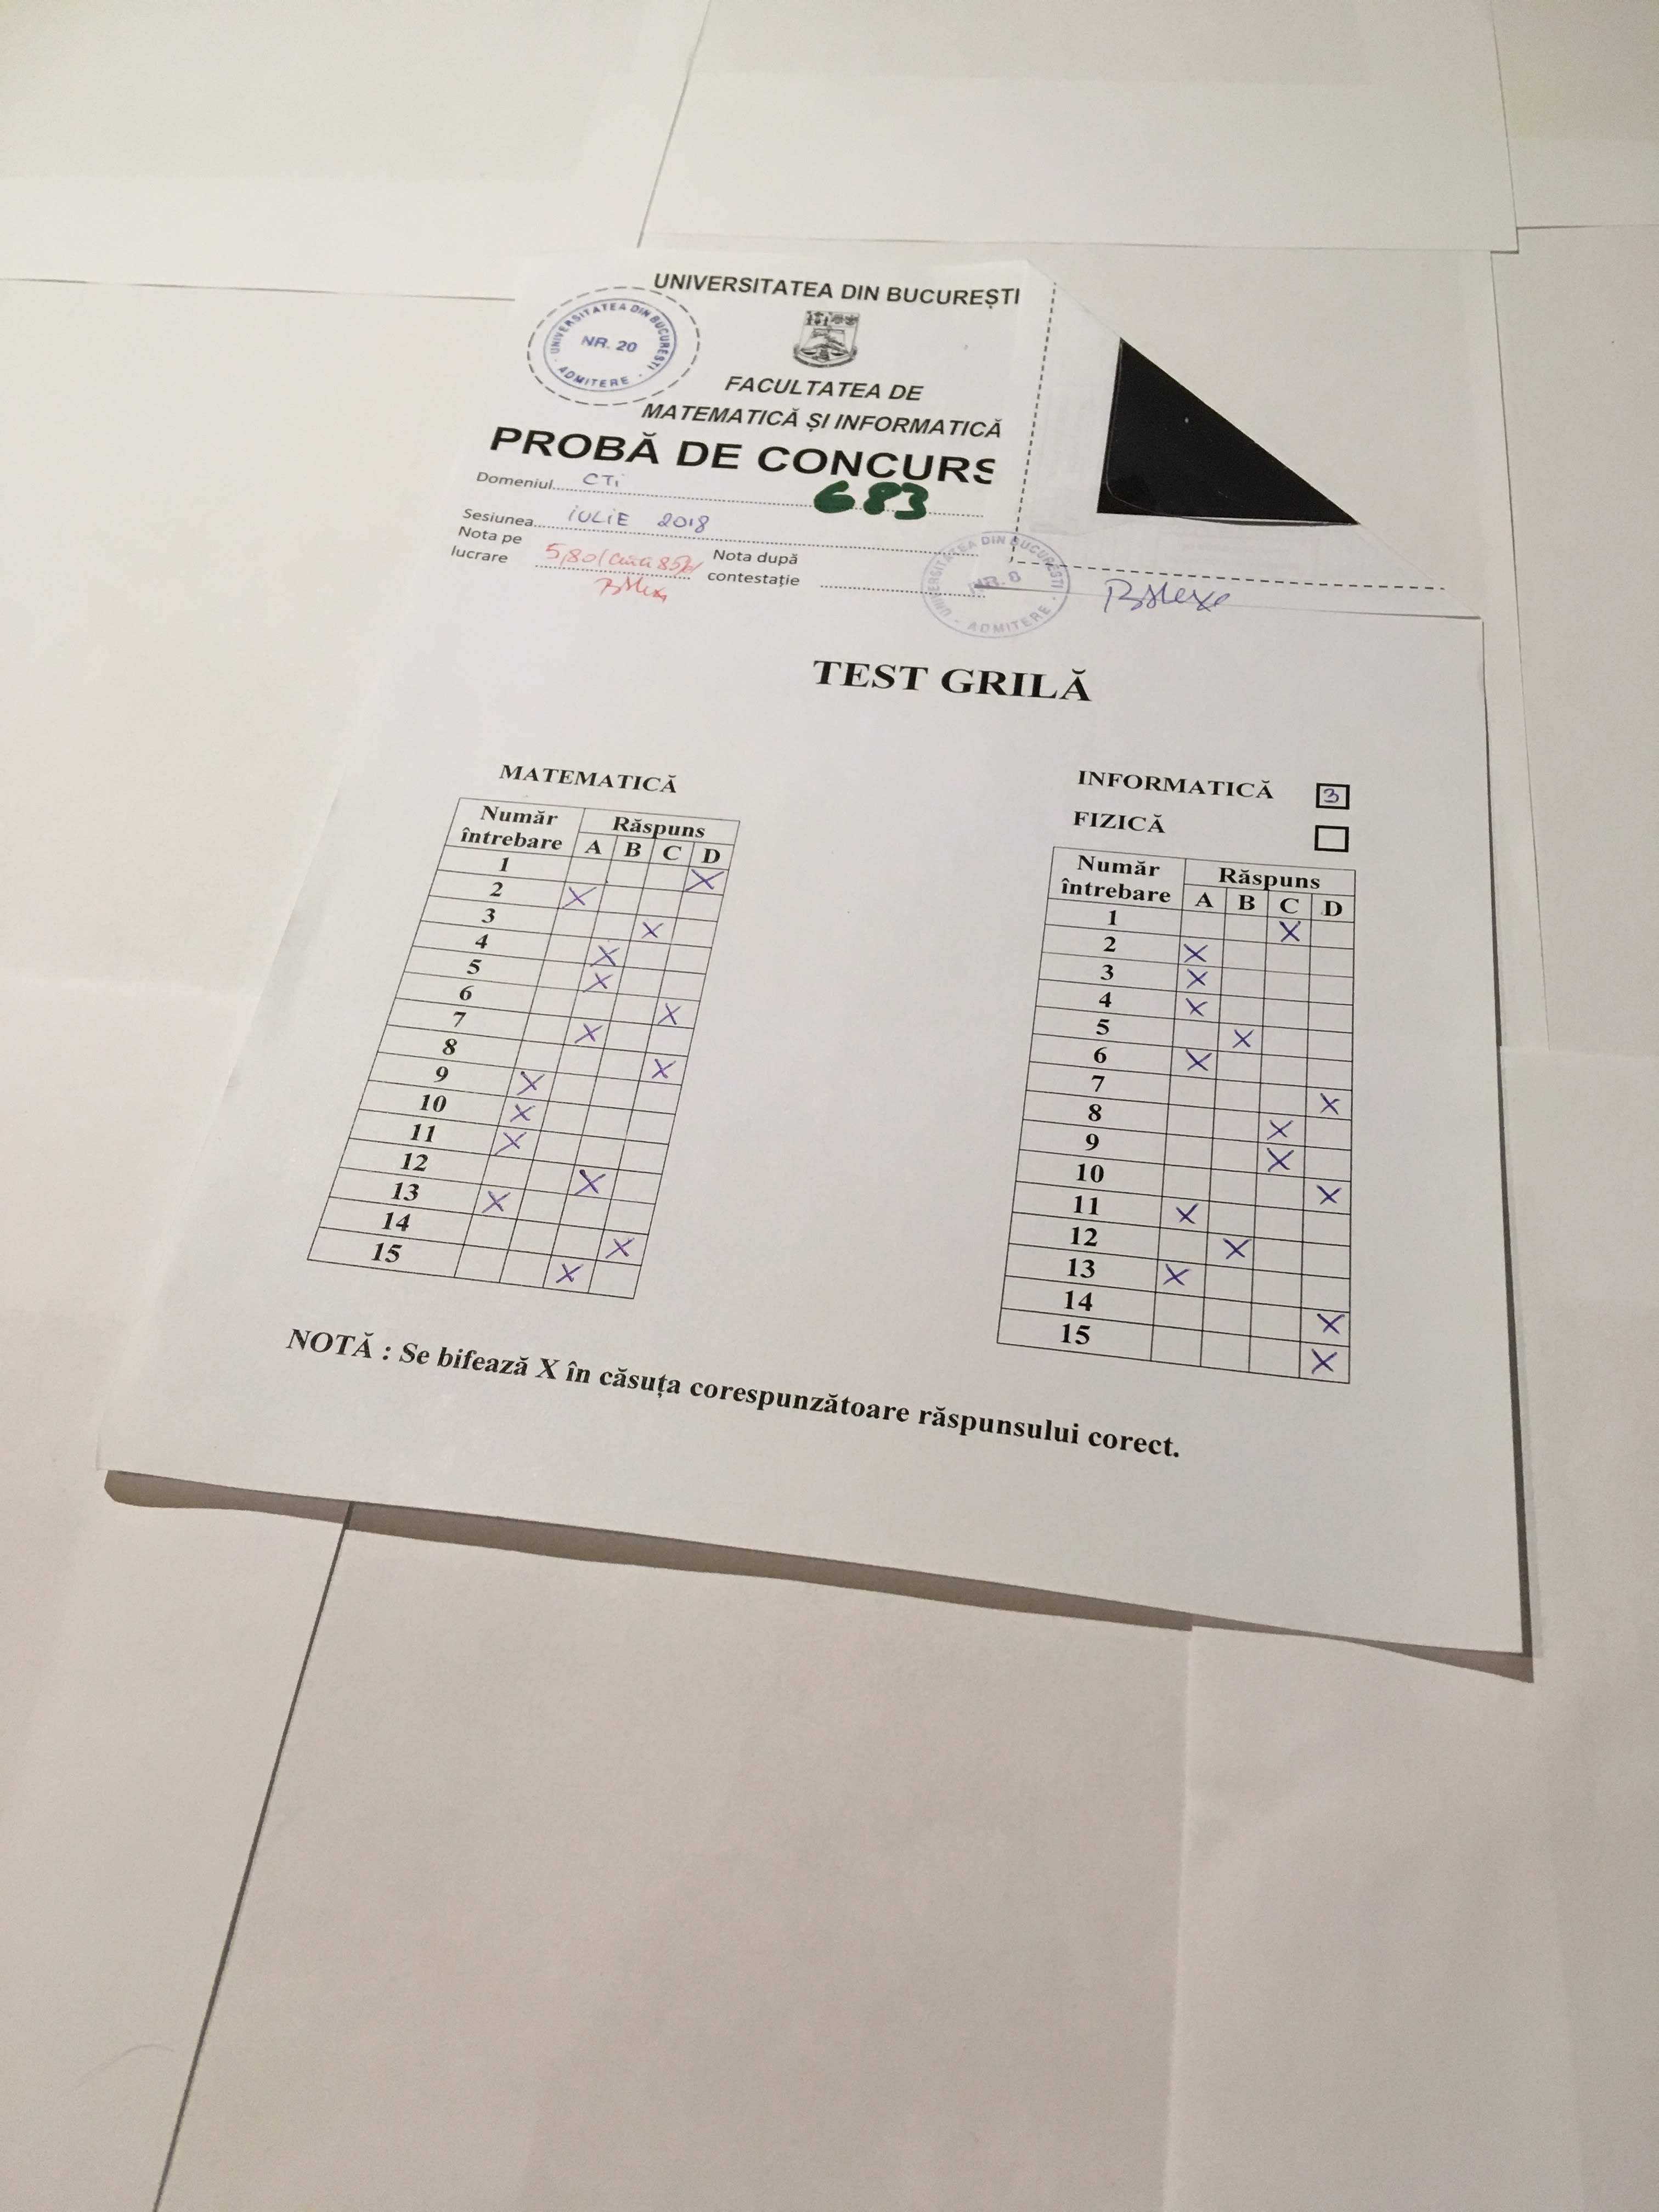 UNIVERSITATEA DIN BUCUREȘTI
UNIVERSITATEA DIN BUCUREȘTI
NR. 20
ADMITERE
FACULTATEA DE
MATEMATICĂ ȘI INFORMATICĂ
PROBĂ DE CONCURS
Domeniul CTi
683
Sesiunea iULiE 2018
Nota pe lucrare 5,80
Nota după contestație
UNIVERSITATEA DIN BUCUREȘTI
NR. 8
ADMITERE
TEST GRILĂ
MATEMATICĂ
Număr întrebare Răspuns
A B C D
1 X
2 X
3 X
4 X
5 X
6 X
7 X
8 X
9 X
10 X
11 X
12 X
13 X
14 X
15 X
INFORMATICĂ 3
FIZICĂ
Număr întrebare Răspuns
A B C D
1 X
2 X
3 X
4 X
5 X
6 X
7 X
8 X
9 X
10 X
11 X
12 X
13 X
14 X
15 X
NOTĂ : Se bifează X în căsuța corespunzătoare răspunsului corect.